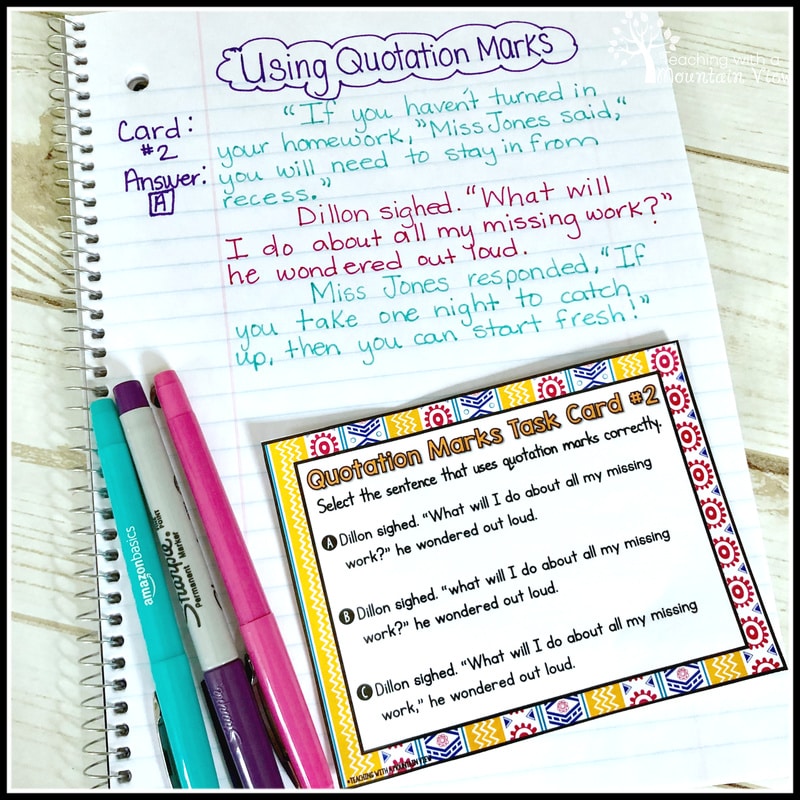 Using Quotation Marks
Teaching with a
Mountain View
Card:
#2
Answer:
A
"If you haven't turned in
your homework," Miss Jones said, "
you will need to stay in from
recess."
Dillon sighed. "What will
I do about all my missing work?"
he wondered out loud.
Miss Jones responded, "If
you take one night to catch
up, then you can start fresh!"
amazonbasics
Sharpie
Permanent Marker
Point
Quotation Marks Task Card #2
Select the sentence that uses quotation marks correctly.
A Dillon sighed. "What will I do about all my missing
work?" he wondered out loud.
B Dillon sighed. "what will I do about all my missing
work?" he wondered out loud.
C Dillon sighed. "What will I do about all my missing
work," he wondered out loud.
©TEACHING WITH A MOUNTAIN VIEW